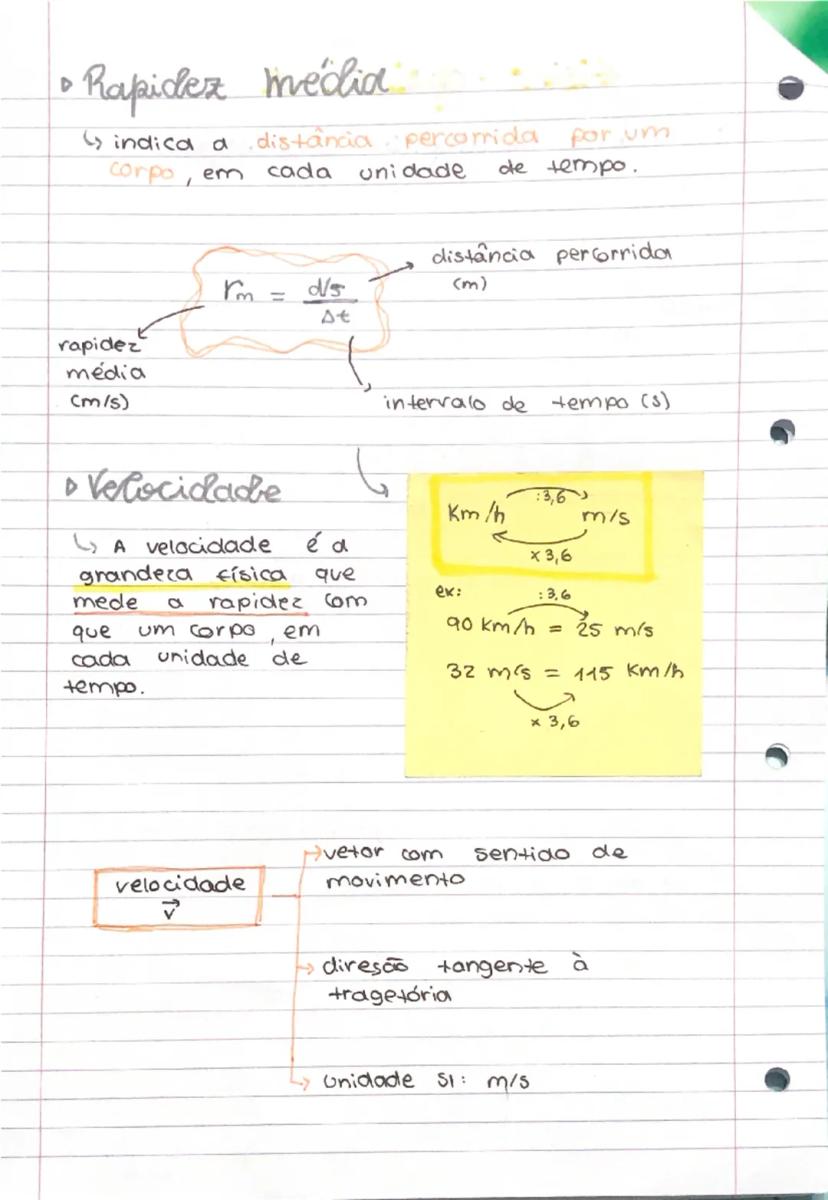 Rapidez média
↳ indica a distância percorrida por um
corpo, em cada unidade de tempo.
distância percorrida
(m)
rm = d/s
Δt
rapidez
média
(m/s)
intervalo de tempo (s)
Velocidade
↳ A velocidade é a
grandeza física que
mede a rapidez com
que um corpo, em
cada unidade de
tempo.
:3,6
Km/h m/s
x 3,6
ex: :3,6
90 Km/h = 25 m/s
32 m/s = 115 Km/h
x 3,6
velocidade
v⃗
→ vetor com sentido de
movimento
→ diresão tangente à
tragetória
→ Unidade SI: m/s